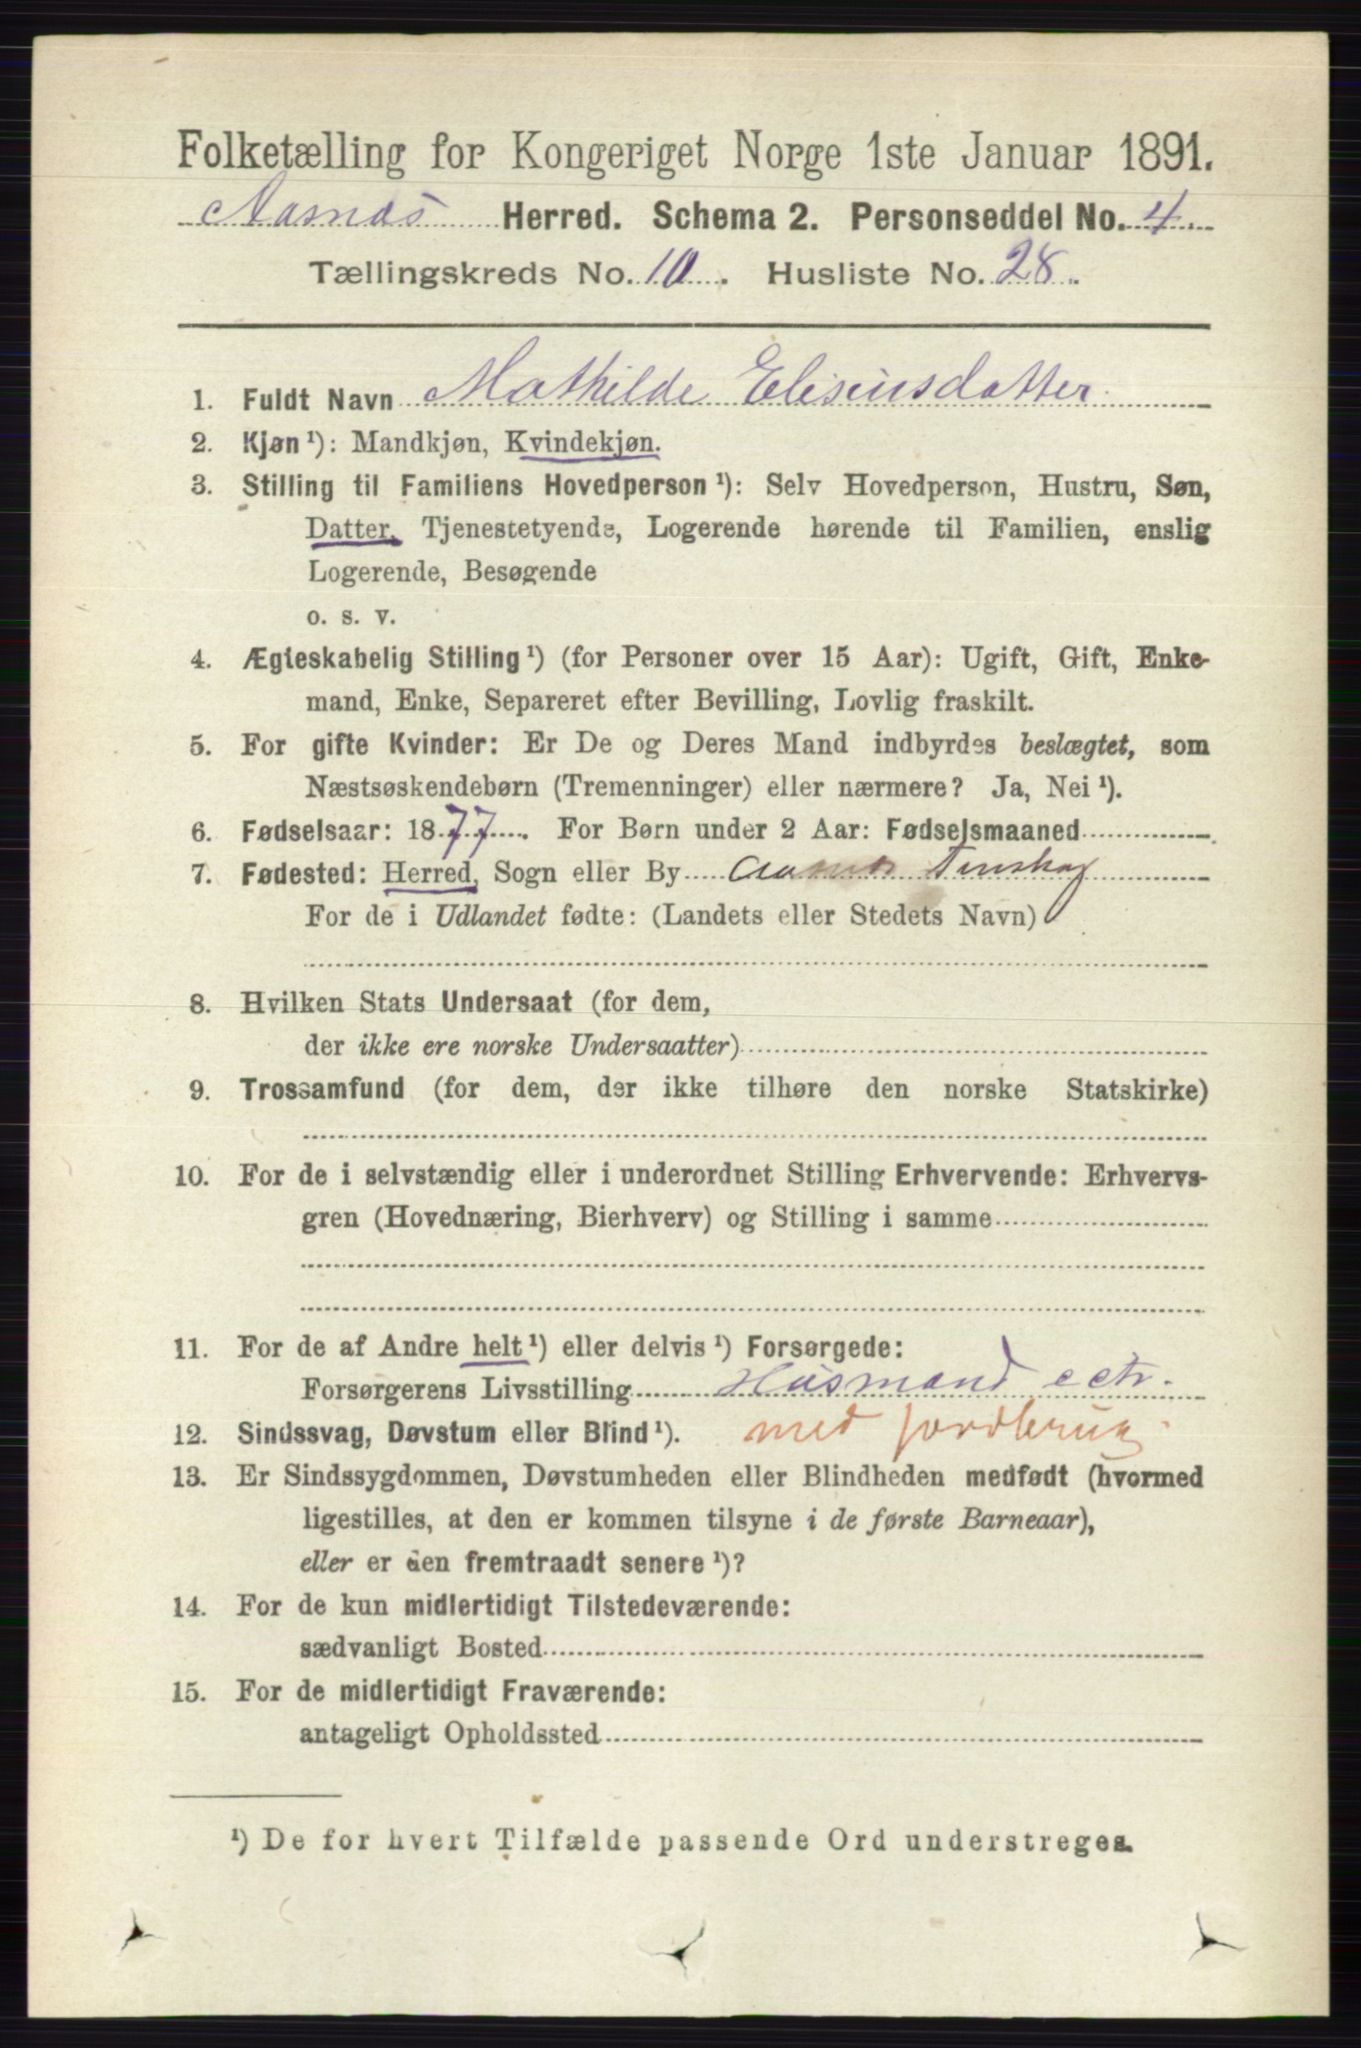 Folketælling for Kongeriget Norge 1ste Januar 1891.
Aasnæs Herred. Schema 2. Personseddel No. 4.
Tællingskreds No. 10. Husliste No. 28.
1. Fuldt Navn Mathilde Eliseusdatter.
2. Kjøn ¹): Mandkjøn, Kvindekjøn.
3. Stilling til Familiens Hovedperson ¹): Selv Hovedperson, Hustru, Søn,
Datter, Tjenestetyende, Logerende hørende til Familien, enslig
Logerende, Besøgende
o. s. v.
4. Ægteskabelig Stilling ¹) (for Personer over 15 Aar): Ugift, Gift, Enke-
mand, Enke, Separeret efter Bevilling, Lovlig fraskilt.
5. For gifte Kvinder: Er De og Deres Mand indbyrdes beslægtet, som
Næstsøskendebørn (Tremenninger) eller nærmere? Ja, Nei ¹).
6. Fødselsaar: 1877. For Børn under 2 Aar: Fødselsmaaned
7. Fødested: Herred, Sogn eller By Aasnæs Finskog
For de i Udlandet fødte: (Landets eller Stedets Navn)
8. Hvilken Stats Undersaat (for dem,
der ikke ere norske Undersaatter)
9. Trossamfund (for dem, der ikke tilhøre den norske Statskirke)
10. For de i selvstændig eller i underordnet Stilling Erhvervende: Erhvervs-
gren (Hovednæring, Bierhverv) og Stilling i samme
11. For de af Andre helt ¹) eller delvis ¹) Forsørgede:
Forsørgerens Livsstilling Husmand
12. Sindssvag, Døvstum eller Blind ¹). med jordbrug
13. Er Sindssygdommen, Døvstumheden eller Blindheden medfødt (hvormed
ligestilles, at den er kommen tilsyne i de første Barneaar),
eller er den fremtraadt senere ¹)?
14. For de kun midlertidigt Tilstedeværende:
sædvanligt Bosted
15. For de midlertidigt Fraværende:
antageligt Opholdssted
¹) De for hvert Tilfælde passende Ord understreges.